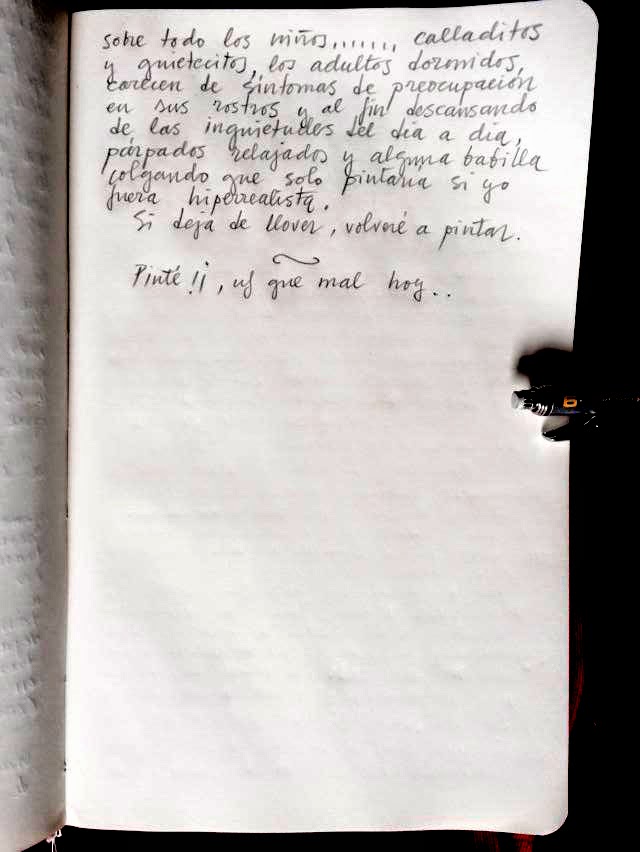 sobre todo los niños,,,,,,, calladitos
y quietecitos, los adultos dormidos,
carecen de síntomas de preocupación
en sus rostros y al fin descansando
de las inquietudes del día a día,
párpados relajados y alguna babilla
colgando que solo pintaría si yo
fuera hiperrealista.
Si deja de llover, volveré a pintar.
Pinté!!¡, uf que mal hoy..